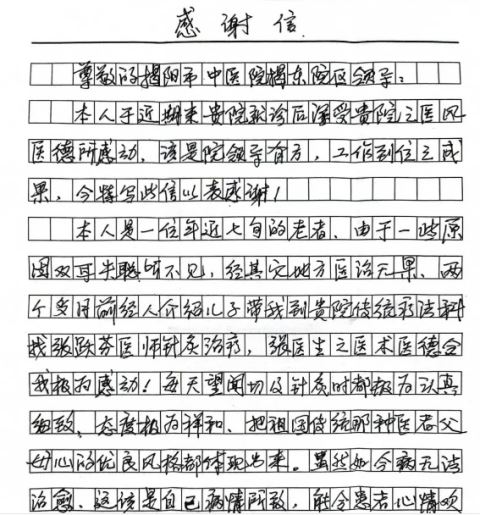 感谢信
尊敬的揭阳市中医院揭东院区领导:
本人于近期来贵院就诊后深受贵院之医风
医德所感动，该是院领导有方，工作到位之成
果，今特写此信以表感谢!
本人是一位年近七旬的老者，由于一些原
因双耳失聪听不见，经其它地方医治无果，两
个多月前经人介绍儿子带我到贵院传统疗法科
找张跃芬医师针灸治疗，张医生之医术医德令
我极为感动!每天望闻切及针灸时都极为认真
细致，态度极为祥和，把祖国传统那种医者父
母心的优良风格都体现出来。虽然如今病无法
治愈，这该是自己病情所致，能令患者心情欢